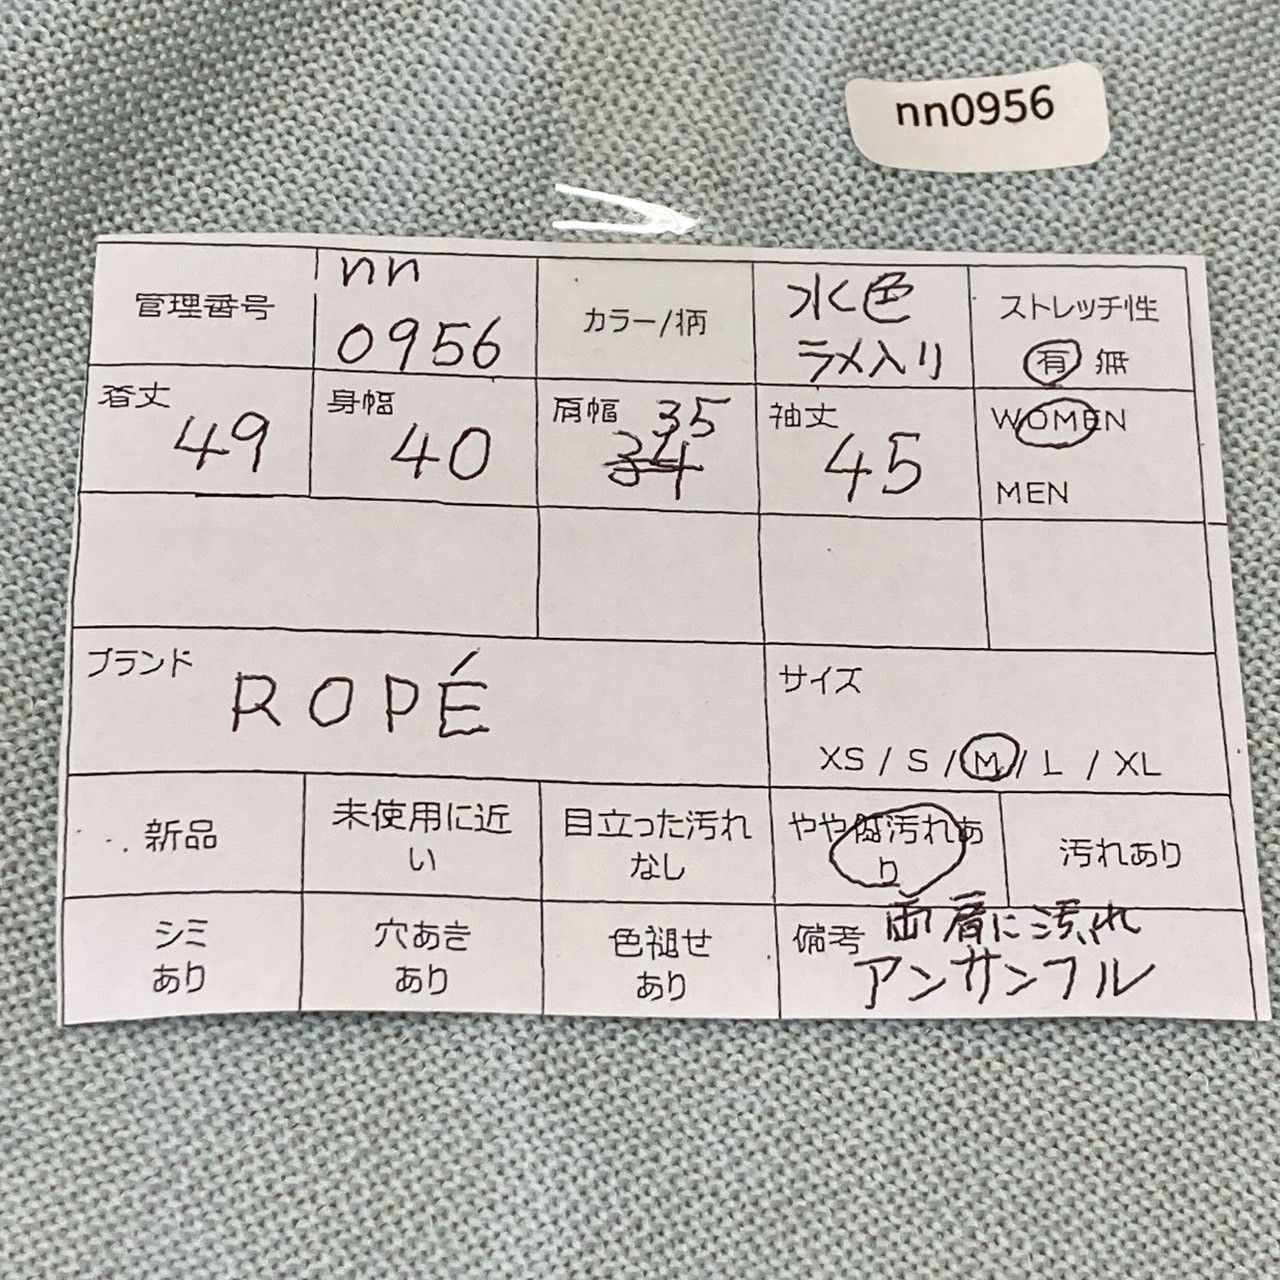 nn0956
管理番号
nn
0956
カラー/柄
水色
ラメ入り
ストレッチ性
有 無
着丈
49
身幅
40
肩幅
35
34
袖丈
45
WOMEN
MEN
ブランド
ROPÉ
サイズ
XS / S / M / L / XL
新品
未使用に近
い
目立った汚れ
なし
やや傷汚れあ
り
汚れあり
シミ
あり
穴あき
あり
色褪せ
あり
備考
両肩に汚れ
アンサンフル